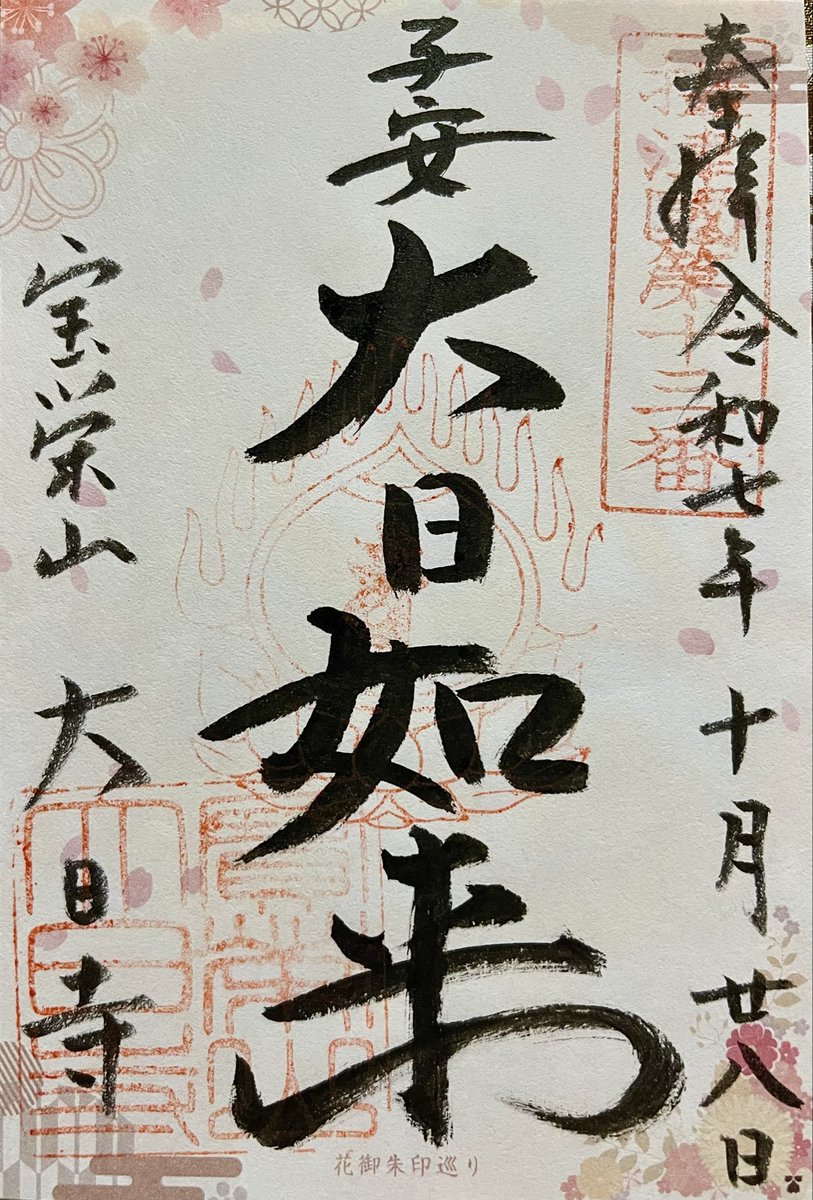 奉拝 令和七年 十月廿八日
摂津国第十三番
子安
大日如来
宝栄山 大日寺
花御朱印巡り